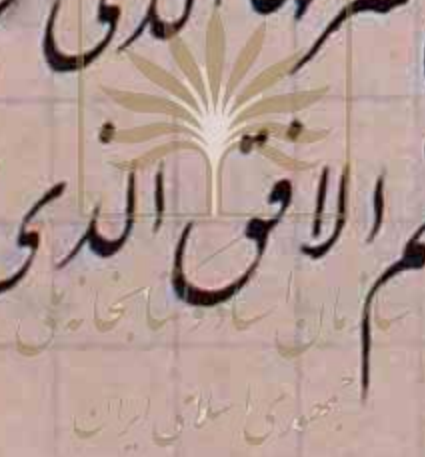 الذی
م الافق الذی
سازمان اسناد و کتابخانه ملی
جمهوری اسلامی ایران